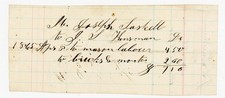 Mr. Joseph Haskell
to J. S. Hinsman Dr
1865 to mason labour 4.50
to bricks & mortar 2.60
$ 7.10